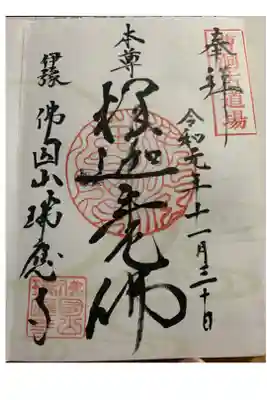 奉拝
令和元年十一月三十日
本尊
釋迦牟尼佛
伊豫 佛国山 瑞應寺